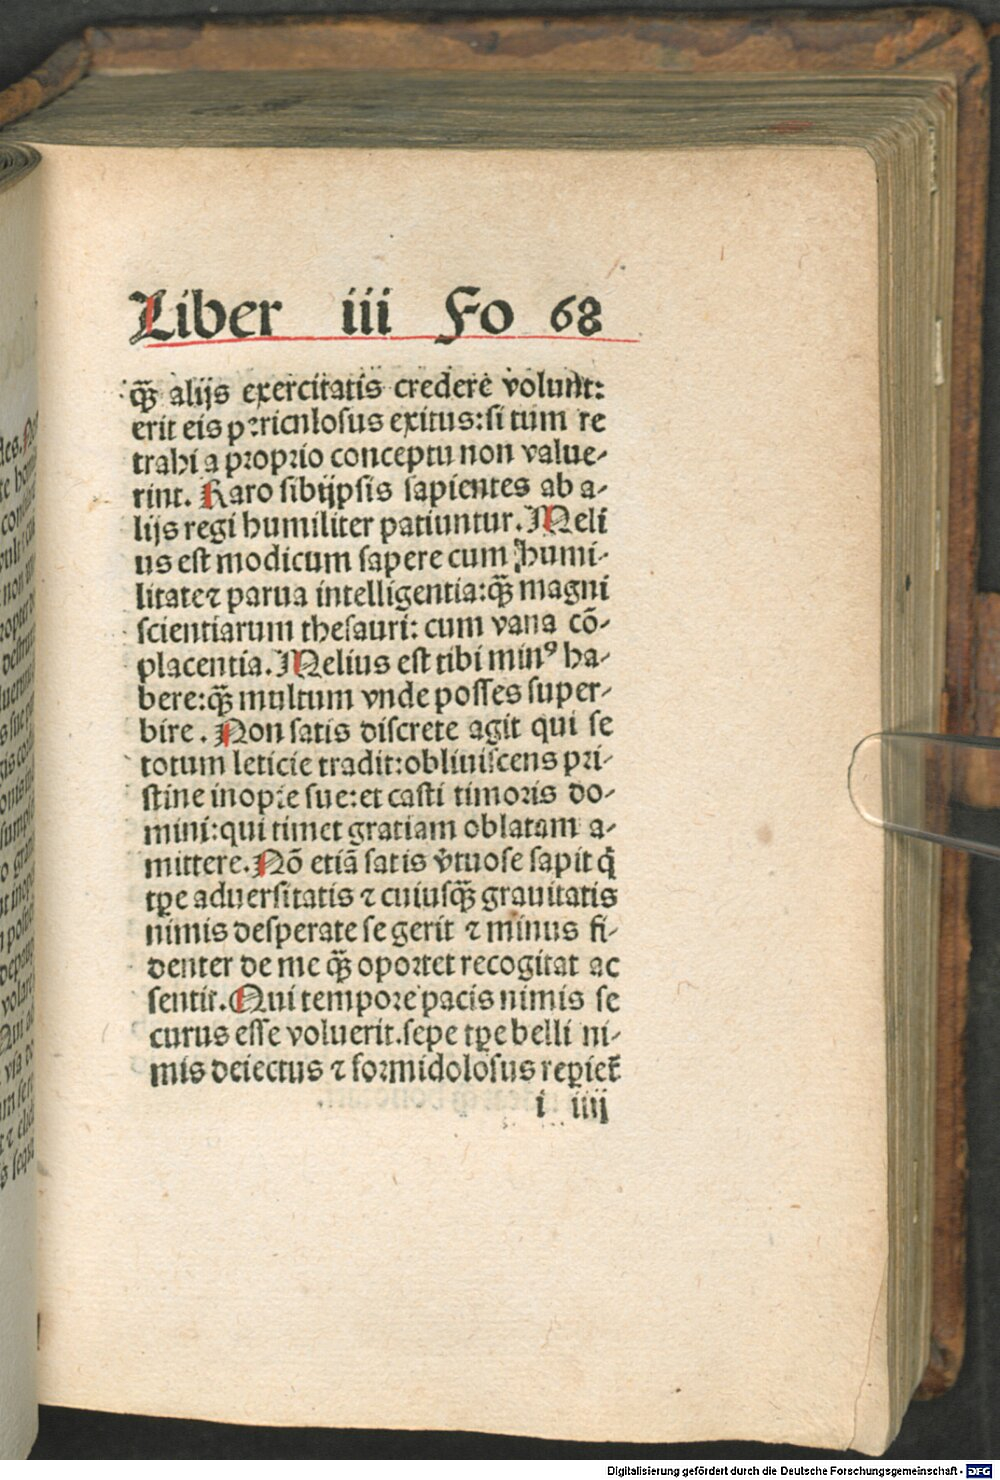 Liber iii Fo 68
q̃ꝫ alijs exercitatis credere volunt:
erit eis periculosus exitus:si tum re
trahi a proprio conceptu non value-
rint. Raro sibijpsis sapientes ab a-
lijs regi humiliter patiuntur. Meli
us est modicum sapere cum humi-
litate ⁊ parua intelligentia:q̃ꝫ magni
scientiarum thesauri: cum vana cō-
placentia. Melius est tibi minꝰ ha-
bere:q̃ꝫ multum vnde posses super-
bire. Non satis discrete agit qui se
totum leticie tradit:obliuiscens pri-
stine inopie sue:et casti timoris do-
mini:qui timet gratiam oblatam a-
mittere. Nō etiā satis v̾tuose sapit q̇
tꝑe aduersitatis ⁊ cuiusq̃ꝫ grauitatis
nimis desperate se gerit ⁊ minus fi-
denter de me q̃ꝫ oportet recogitat ac
sentit. Qui tempore pacis nimis se
curus esse voluerit.sepe tꝑe belli ni-
mis deiectus ⁊ formidolosus reꝑiet᷑
i iiij
Digitalisierung gefördert durch die Deutsche Forschungsgemeinschaft - DFG